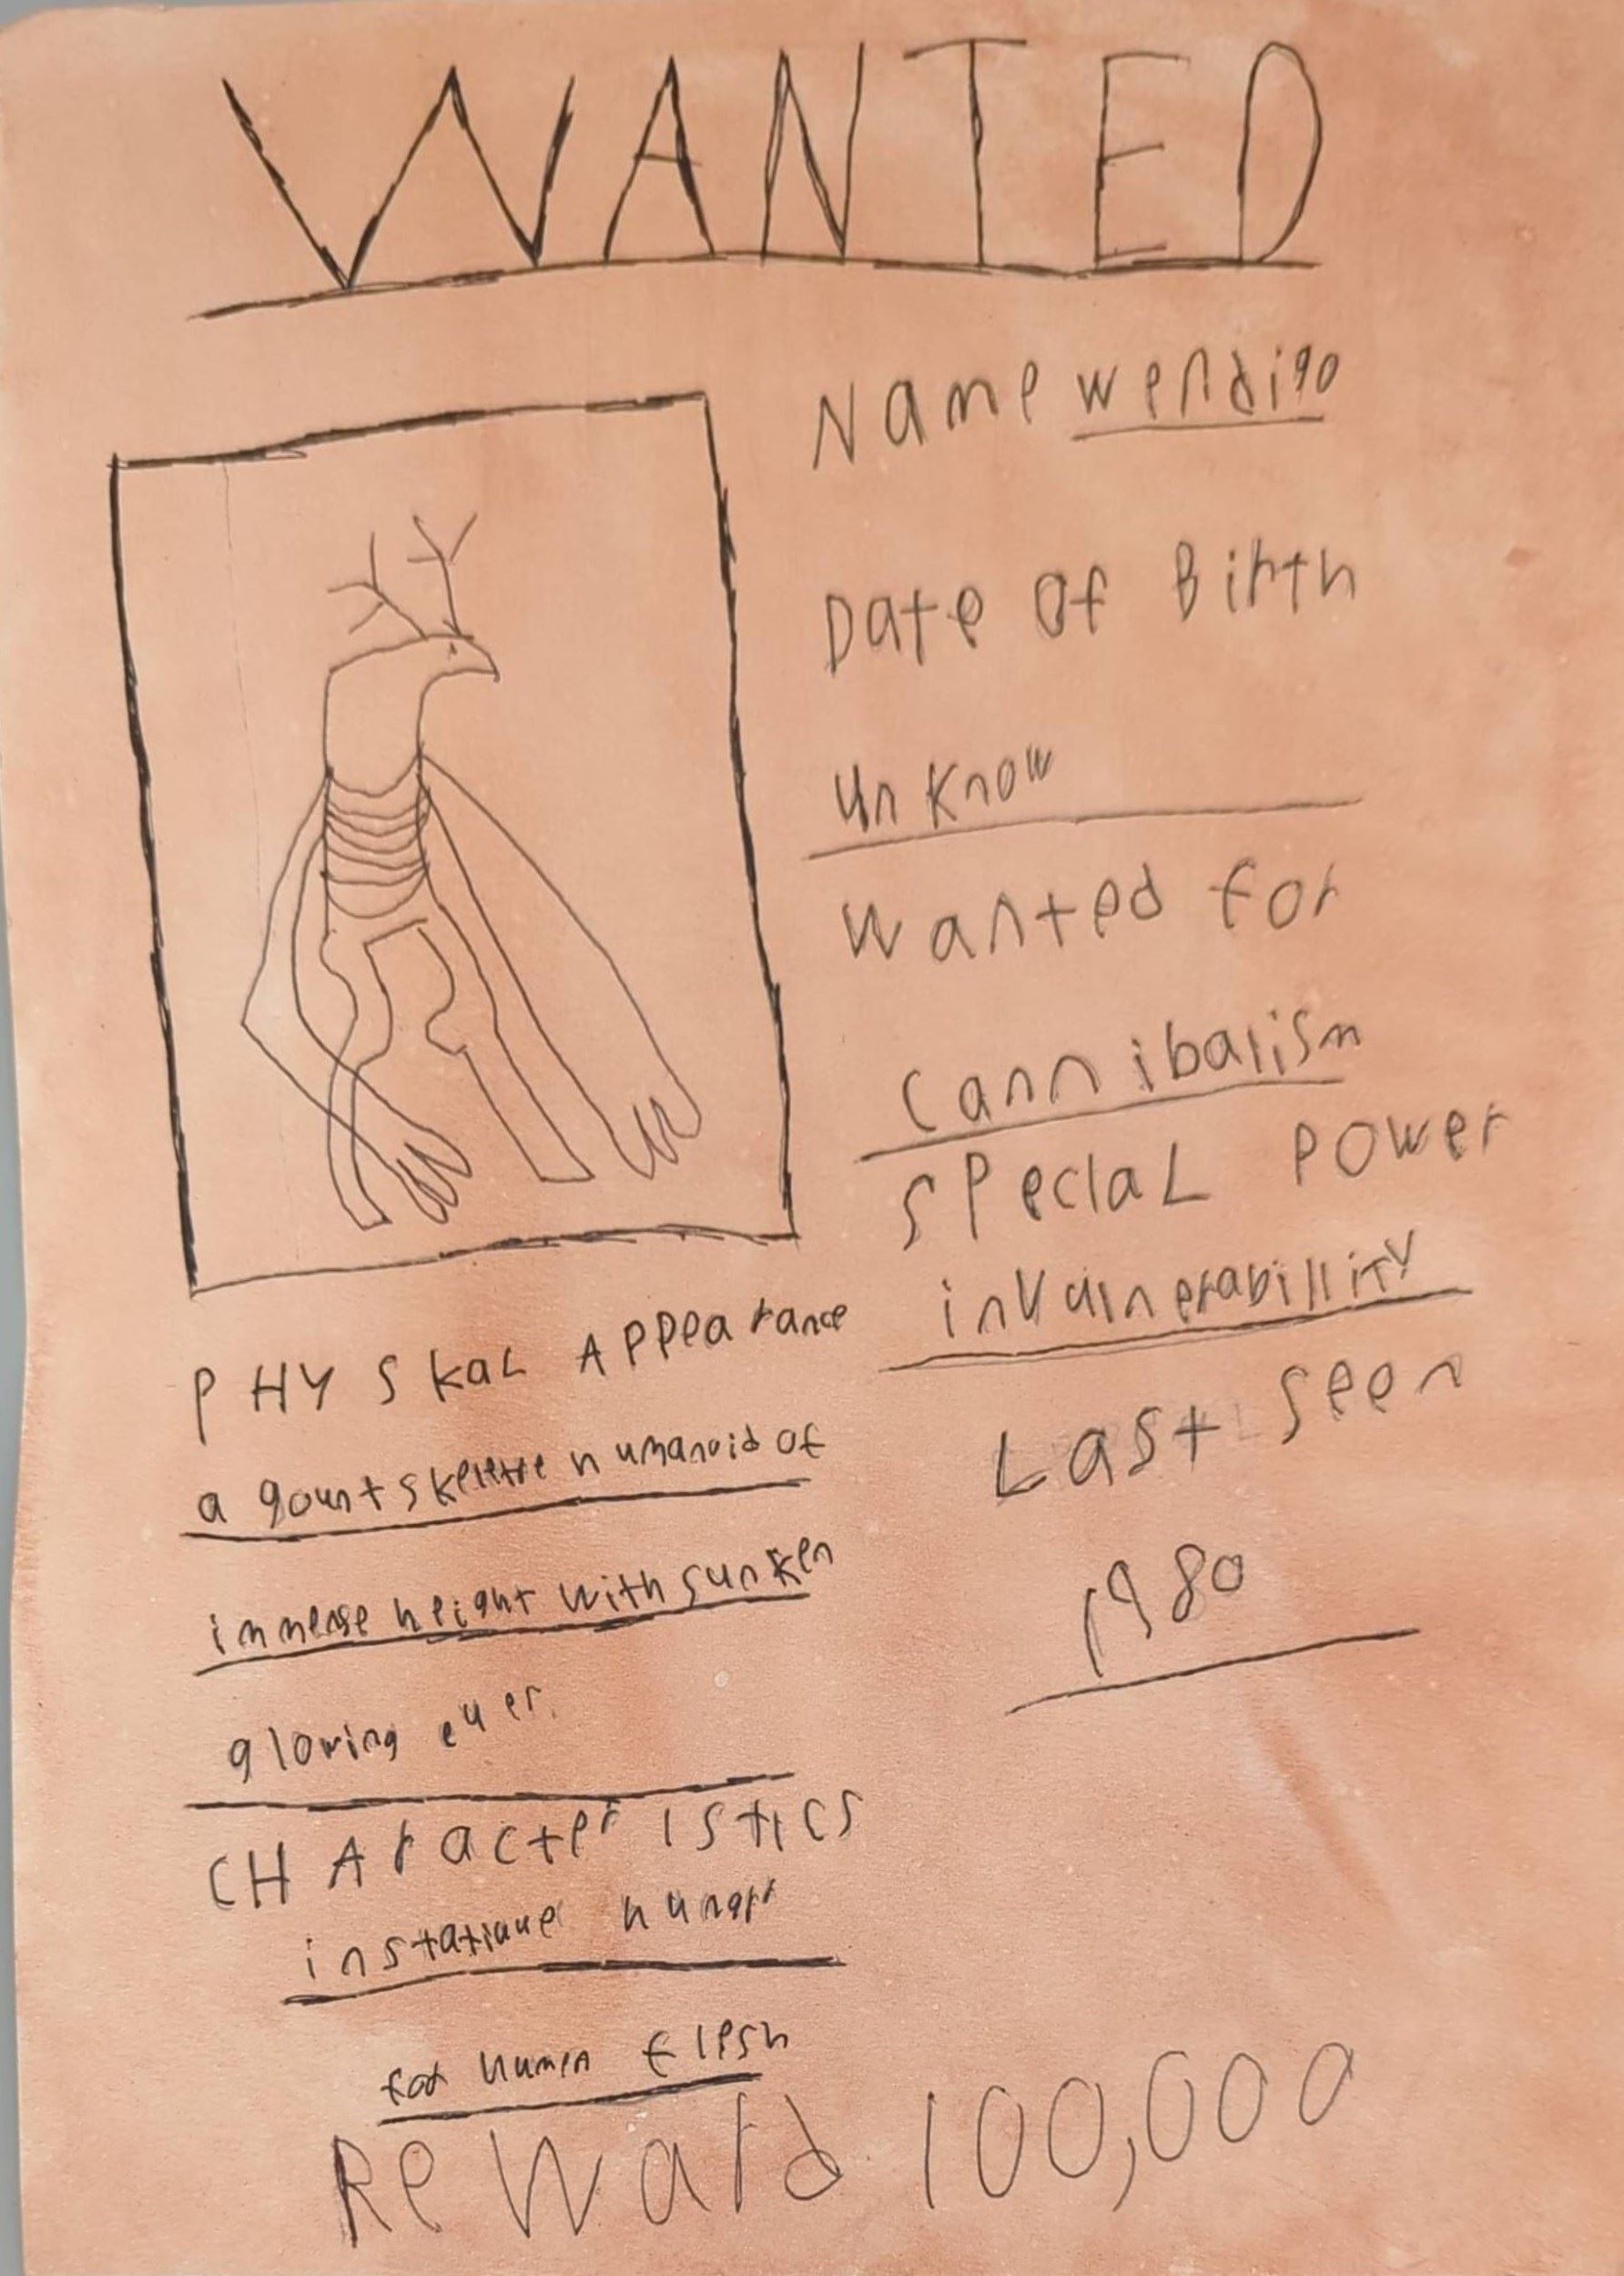 WANTED
Name wendigo
Date of Birth
unknow
wanted for
cannibalism
special power
invulnerabillity
Last seen
1980
PHYSkaL Appearance
a gount skelitte humanoid of
immense height with sunken
gloving eyer.
CHAracteristics
hunger
for humen flesh
Reward 100,000